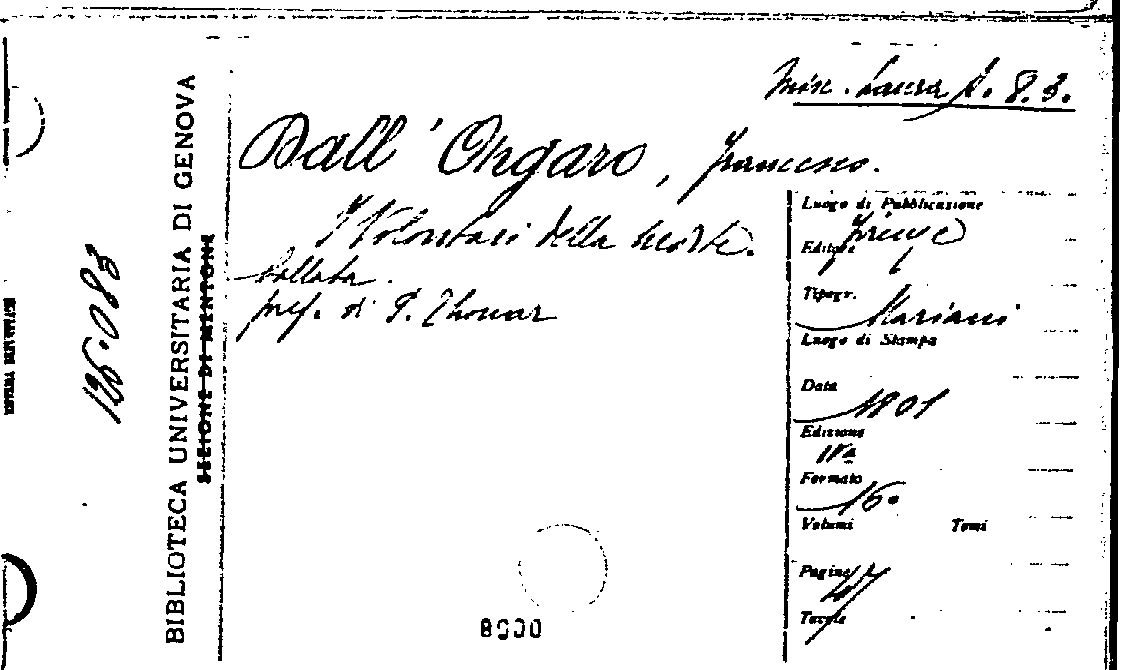 Misc. Laura A. 8.3.
Dall'Ongaro, Francesco.
I Volontari della morte.
ballata.
pref. di P. Thouar
Luogo di Pubblicazione
Firenze
Editore
Tipogr.
Mariani
Luogo di Stampa
Data
Edizione
IIa
Formato
16°
Volumi Tomi
Pagine
47
Tavole
BIBLIOTECA UNIVERSITARIA DI GENOVA
SEZIONE DI MENTONE
126.083